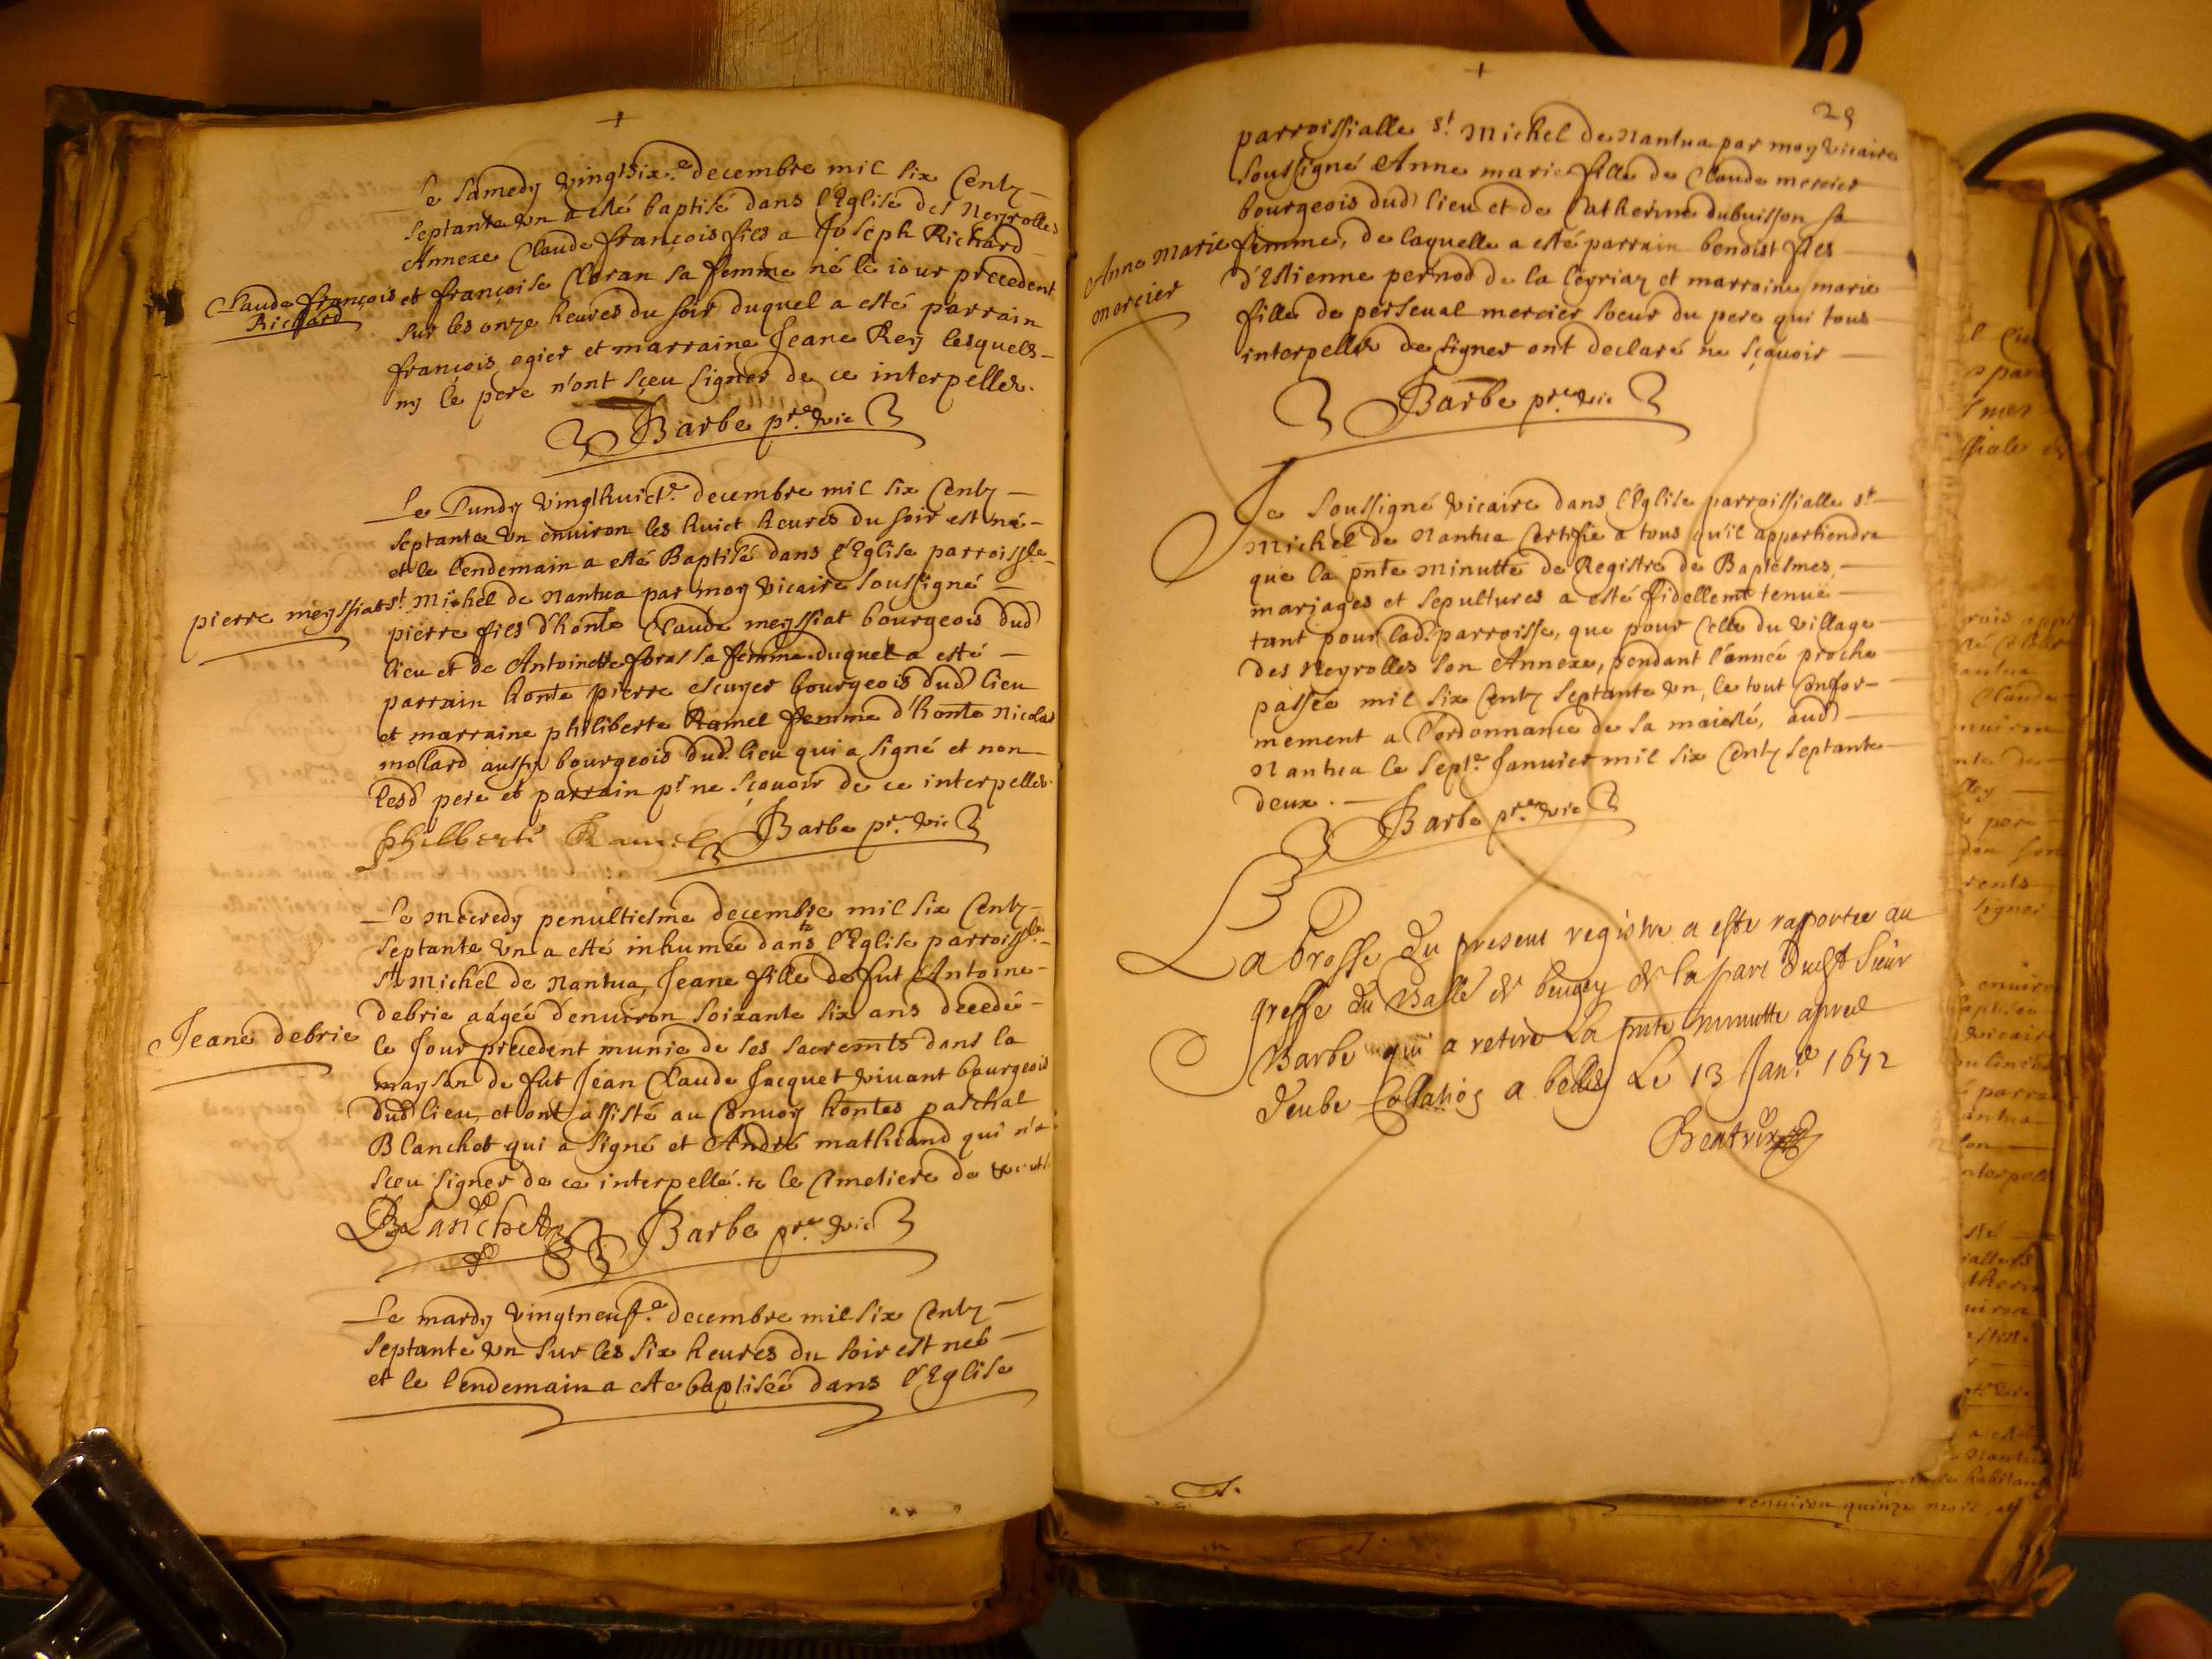 +
Le samedy vingtsix.e decembre mil six Centz
septante vn a esté baptisé dans l'Eglise des Neyrolles
Annexe Claude françois fils a Joseph Richard
Claude françois
Richard
et françoise Cloran sa femme né le iour precedent
sur les onze heures du soir duquel a esté parrain
françois ogier et marraine Jeane Rey lesquels
ny le pere n'ont sçeu signer de ce interpellez.
Barbe pr.e vic
Le Lundy vingthuict.e decembre mil six Centz
septante vn environ les huict heures du soir est né
et le lendemain a esté Baptisé dans l'Eglise parroissle
pierre meyssiat
st Michel de Nantua par moy vicaire soussigné
pierre fils d'honte Claude meyssiat bourgeois dud
lieu et de Antoinette foras sa femme duquel a esté
parrain honte pierre escuyer bourgeois dud lieu
et marraine philiberte Ramel femme d'honte Nicolas
mollard aussy bourgeois dud. lieu qui a signé et non
lesd pere et parrain pr ne sçavoir de ce interpellez.
philberte Ramel Barbe pr.e vic
Le Mecredy penultiesme decembre mil six Centz
septante vn a esté inhumée dans l'Eglise parroissle
st Michel de Nantua, Jeane fille de fut Antoine
debrie aagée d'enuiron soixante six ans decedé
Jeane debrie
le Jour precedent munie de ses sacremts dans la
mayson de fut Jean Claude Jacquet viuant bourgeois
dud lieu, et ont assisté au Convoy hontes paschal
Blanchet qui a signé et André mathiand qui n'a
sçeu signer de ce interpellé. le Cimetiere de
Blanchet Barbe pr.e vic
Le mardy vingtneuf.e decembre mil six Centz
septante vn sur les six heures du soir est neé
et le lendemain a esté baptisée dans l'Eglise
+
29
parroissialle st. Michel de Nantua par moy vicaire
soussigné Anne marie fille de Claude mercier
bourgeois dud lieu et de Catherine dubuisson sa
Anne marie
mercier
femme, de laquelle a esté parrain benoist fils
d'Estienne pernod de la leyriaz et marraine marie
fille de perseual mercier soeur du pere qui tous
interpellés de signer ont declaré ne sçauoir
Barbe pr.e vic
Je soussigné vicaire dans l'Eglise parroissialle st
Michel de Nantua Certifie a tous qu'il appartiendra
que la pnte Minutte de Registre de Baptesmes,
mariages et sepultures a esté fidellemt tenue
tant pour lad. parroisse, que pour Celle du village
des Neyrolles son Annexe, pendant l'année proche
passée mil six Centz septante vn, le tout Confor-
mement a l'ordonnance de sa maiesté, aud
Nantua le sept.e Januier mil six Centz septante
deux.
Barbe pr.e vic
La Grosse du present registre a esté raportée au
greffe du Balle de beugey de la part dud st Sieur
Barbe qui a retiré La pnte minutte apres
deube Collation a belley Le 13 Jan.er 1672
Beatrix